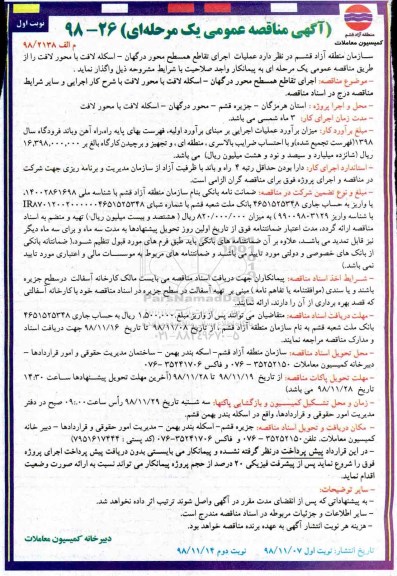 نوبت اول
منطقه آزاد قشم
کمیسیون معاملات
(آگهی مناقصه عمومی یک مرحله‌ای) ۲۶-۹۸
م الف ۹۸/۲۱۳۸
سازمان منطقه آزاد قشم در نظر دارد عملیات اجرای تقاطع همسطح محور درگهان - اسکله لافت با محور لافت را از
طریق مناقصه عمومی یک مرحله ای به پیمانکار واجد صلاحیت با شرایط مشروحه ذیل واگذار نماید .
- موضوع مناقصه: اجرای تقاطع همسطح محور درگهان - اسکله لافت با محور لافت با شرح کار اجرایی و سایر شرایط
مناقصه درج در اسناد مناقصه.
- محل و اجرا پروژه : استان هرمزگان - جزیره قشم - محور درگهان - اسکله لافت با محور لافت
- مدت زمان اجرای کار: ۳ ماه شمسی می باشد.
- مبلغ برآورد کار: میزان برآورد عملیات اجرایی بر مبنای برآورد اولیه، فهرست بهای پایه راه،راه آهن وباند فرودگاه سال
۱۳۹۸(فهرست تجمیع شده)و با احتساب ضرایب بالاسری ، منطقه ای ، و تجهیز و برچیدن کارگاه بالغ بر ۱۶,۳۹۸,۰۰۰,۰۰۰
ریال (شانزده میلیارد و سیصد و نود و هشت میلیون ریال) می باشد.
- استاندارد اجرای کار: دارا بودن حداقل رتبه ۴ راه و باند با ظرفیت آزاد از سازمان مدیریت و برنامه ریزی جهت شرکت
در مناقصه و اجرای پروژه فوق برای مناقصه گران الزامی است.
- مبلغ و نوع تضمین شرکت در مناقصه: ضمانت نامه بانکی بنام سازمان منطقه آزاد قشم با شناسه ملی ۱۴۰۰۲۸۶۱۶۹۸.
یا واریز به حساب جاری ۴۶۵۱۵۲۵۳۴۸ بانک ملت شعبه قشم با شماره شبای
با شناسه واریز ۹۹۰۰۹۸۰۳۱۲۹ ) به میزان ۸۲۰/۰۰۰/۰۰۰ ریال ( هشتصد و بیست میلیون ریال) تهیه و منضم به اسناد
مناقصه ارائه گردد، مدت اعتبار ضمانتنامه فوق از تاریخ اولین روز تحویل پیشنهادها به مدت سه ماه و برای سه ماه دیگر
نیز قابل تمدید می باشد. علاوه بر آن ضمانتنامه های بانکی باید طبق فرم های مورد قبول تنظیم شود.( ضمانتنامه بانکی
از بانک های خصوصی و دولتی مورد تایید می باشد و ضمانتنامه های مربوط به موسسات مالی و اعتباری مورد تایید
نمی باشد.)
- شرایط اخذ اسناد مناقصه: پیمانکاران جهت دریافت اسناد مناقصه می بایست مالک کارخانه آسفالت درسطح جزیره
باشند و یا سندی (موافقتنامه یا تفاهم نامه ) مبنی بر تهیه آسفالت در سطح جزیره در اسناد مناقصه خود با کارخانه آسفالتی
که قصد بهره برداری از آن را دارند، ارائه نمایند.
- مهلت دریافت اسناد مناقصه: متقاضیان می توانند پس از واریز مبلغ ۱,۵۰۰,۰۰۰ ریال به حساب جاری ۴۶۵۱۵۲۵۳۴۸
بانک ملت شعبه قشم به نام سازمان منطقه آزاد قشم ، از تاریخ ۹۸/۱۱/۰۸ تا تاریخ ۹۸/۱۱/۱۶ جهت دریافت اسناد
و مدارک مناقصه مراجعه نمایند.
- محل تحویل اسناد مناقصه: سازمان منطقه آزاد قشم- اسکله بندر بهمن - ساختمان مدیریت حقوقی و امور قراردادها -
دبیرخانه کمیسیون معاملات ۳۵۲۵۲۱۵۰-۰۷۶ فاکس ۳۵۲۴۱۷۰۶-۰۷۶
- مهلت تحویل پاکات مناقصه: از تاریخ ۹۸/۱۱/۱۹ تا ۹۸/۱۱/۲۸ (آخرین مهلت تحویل پیشنهادها ساعت ۱۴:۳۰
تاریخ ۹۸/۱۱/۲۸ می باشد)
- زمان و محل تشکیل کمیسیون و بازگشایی پاکتها: سه شنبه تاریخ ۹۸/۱۱/۲۹ رأس ساعت ۰۹:۰۰ صبح در دفتر
مدیریت امور حقوقی و قراردادها، واقع در اسکله بندر بهمن قشم.
- مکان دریافت و تحویل اسناد مناقصه: جزیره قشم- اسکله بندر بهمن - مدیریت امور حقوقی و قراردادها - دبیر خانه
کمیسیون معاملات. تلفن: ۳۵۲۵۲۱۵۰ - ۰۷۶ و فاکس ۳۵۲۴۱۷۰۶-۰۷۶ (کد پستی : ۷۹۵۱۶۱۷۴۴۴)
- در این قرارداد پیش پرداخت درنظر گرفته نشده و پیمانکار می بایستی بدون دریافت پیش پرداخت اجرای پروژه
فوق را شروع نماید پس از پیشرفت فیزیکی ۲۰ درصد از حجم پروژه پیمانکار می تواند نسبت به ارائه صورت وضعیت
اقدام نماید.
- سایر توضیحات:
- به پیشنهاداتی که پس از انقضای مدت مقرر در آگهی واصل شوند ترتیب اثر داده نخواهد شد.
- سایر اطلاعات و جزئیات مربوطه در اسناد مناقصه مندرج است.
- هزینه هر نوبت انتشار آگهی به عهده برنده مناقصه خواهد بود.
دبیرخانه کمیسیون معاملات
تاریخ انتشار: نوبت اول ۹۸/۱۱/۰۷ نوبت دوم ۹۸/۱۱/۱۴